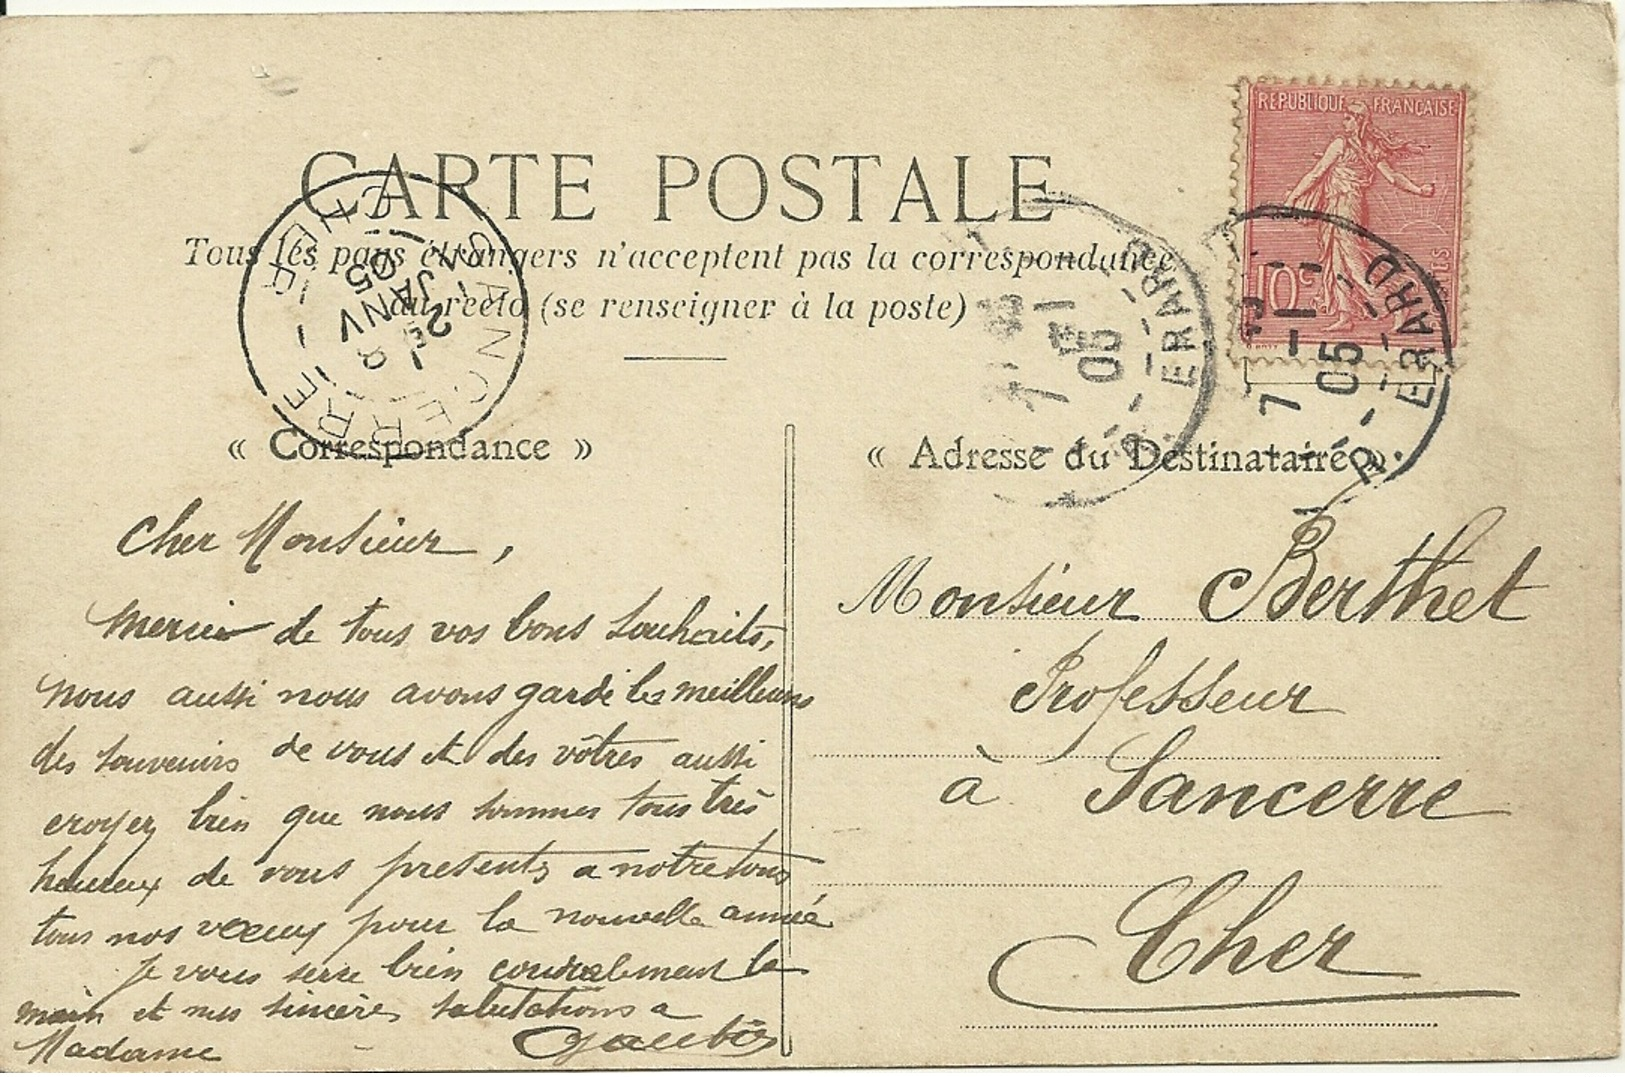 CARTE POSTALE
Tous les pays étrangers n'acceptent pas la correspondance
au recto (se renseigner à la poste)
REPUBLIQUE FRANÇAISE
10c
SANCERRE
CHER
2 JANV 05
7 -1 05
ERARD
7 -1 05
ERARD
« Correspondance »
Cher Monsieur,
merci de tous vos bons souhaits,
nous aussi nous avons gardé les meilleurs
des souvenirs de vous et des vôtres aussi
croyez bien que nous sommes tous très
heureux de vous presenter a notre tour
tous nos voeux pour la nouvelle année
Je vous serre bien cordialement la
main et mes sincères salutations a
Madame
« Adresse du Destinataire ».
Monsieur Berthet
Professeur
à Sancerre
Cher